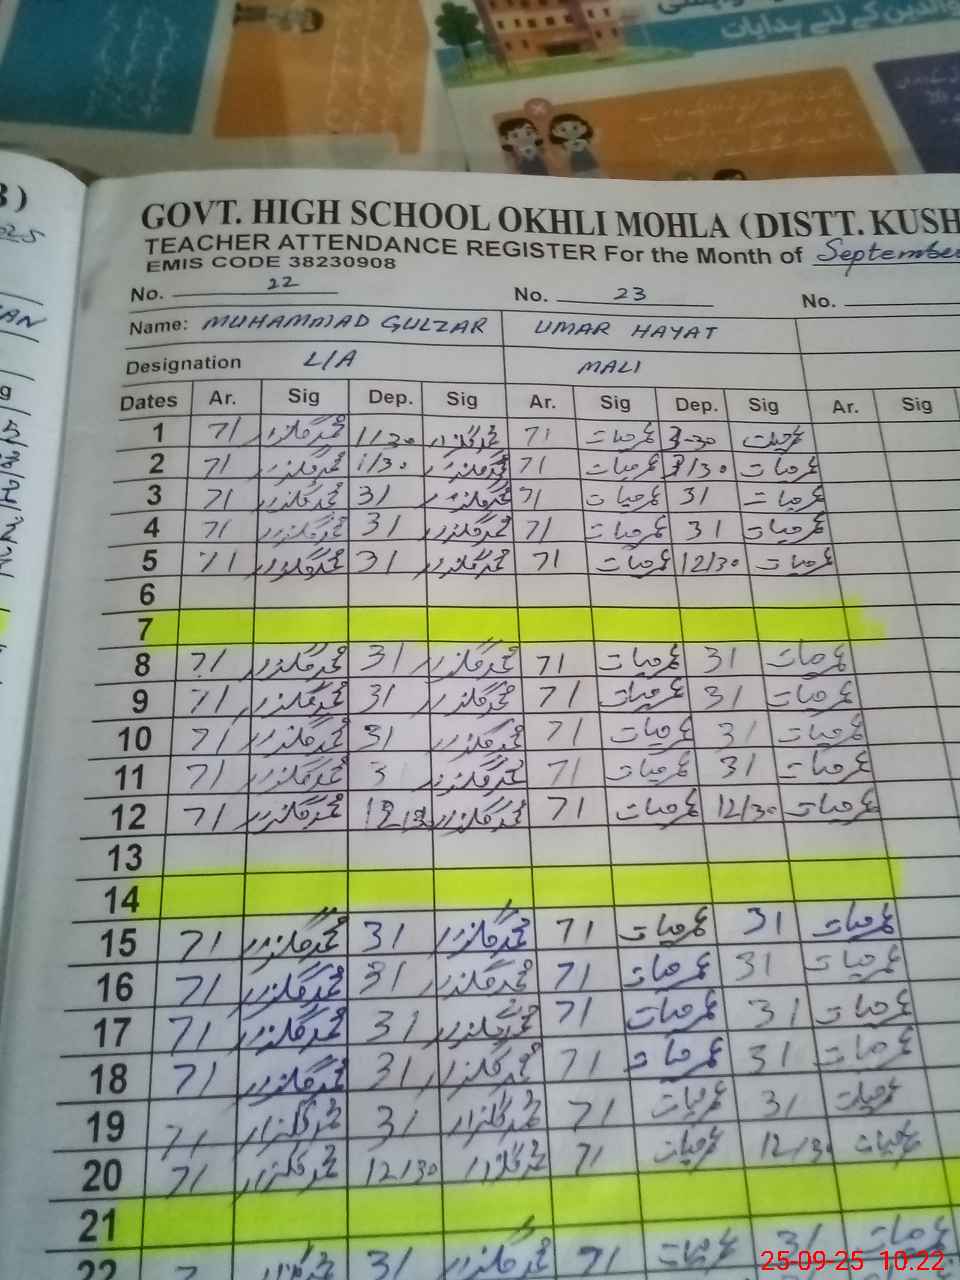 والدین کے لئے ہدایات
GOVT. HIGH SCHOOL OKHLI MOHLA (DISTT. KUSH
TEACHER ATTENDANCE REGISTER For the Month of September
EMIS CODE 38230908
No. 22 No. 23 No.
Name: MUHAMMAD GULZAR UMAR HAYAT
Designation L/A MALI
Dates Ar. Sig Dep. Sig Ar. Sig Dep. Sig Ar. Sig
1 71 محمد گلزار 1/30 محمد گلزار 71 عمر حیات 3-30 عمر حیات
2 71 محمد گلزار 1/30 محمد گلزار 71 عمر حیات 3/30 عمر حیات
3 71 محمد گلزار 31 محمد گلزار 71 عمر حیات 31 عمر حیات
4 71 محمد گلزار 31 محمد گلزار 71 عمر حیات 31 عمر حیات
5 71 محمد گلزار 31 محمد گلزار 71 عمر حیات 12/30 عمر حیات
6
7
8 71 محمد گلزار 31 محمد گلزار 71 عمر حیات 31 عمر حیات
9 71 محمد گلزار 31 محمد گلزار 71 عمر حیات 31 عمر حیات
10 71 محمد گلزار 31 محمد گلزار 71 عمر حیات 31 عمر حیات
11 71 محمد گلزار 3 محمد گلزار 71 عمر حیات 31 عمر حیات
12 71 محمد گلزار محمد گلزار 71 عمر حیات 12/30 عمر حیات
13
14
15 71 محمد گلزار 31 محمد گلزار 71 عمر حیات 31 عمر حیات
16 71 محمد گلزار 31 محمد گلزار 71 عمر حیات 31 عمر حیات
17 71 محمد گلزار 31 محمد گلزار 71 عمر حیات 31 عمر حیات
18 71 محمد گلزار 31 محمد گلزار 71 عمر حیات 31 عمر حیات
19 71 محمد گلزار 31 محمد گلزار 71 عمر حیات 31 عمر حیات
20 71 محمد گلزار 12/30 محمد گلزار 71 عمر حیات 12/30 عمر حیات
21
22 محمد گلزار 31 محمد گلزار 71 عمر حیات 31 عمر حیات
25-09-25 10.22